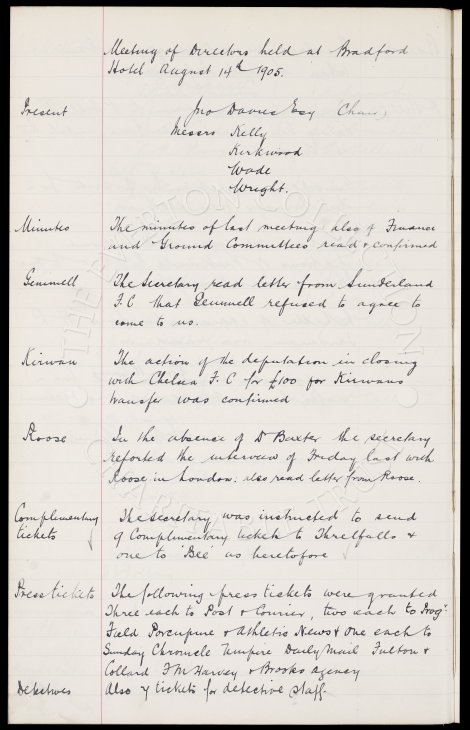 Meeting of Directors held at Bradford
Hotel August 14th 1905.
Present Jno Davies Esq Chair,
Messrs Kelly
Kirkwood
Wade
Wright.
Minutes The minutes of last meeting also of Finance
and Ground Committees read & confirmed
Gemmell The Secretary read letter from Sunderland
F.C that Gemmell refused to agree to
come to us.
Kirwan The action of the deputation in closing
with Chelsea F.C for £100 for Kirwans
transfer was confirmed
Roose In the absence of Dr Baxter the secretary
reported the interview of Friday last with
Roose in London. also read letter from Roose.
Complimentary The secretary was instructed to send
tickets 9 Complimentary tickets to Threlfalls &
one to 'Bee' as heretofore
Press tickets The following press tickets were granted
Three each to Post & Courier, two each to Prog.
Field Porcupine & Athletic News & one each to
Sunday Chronicle Umpire Daily Mail Fulton &
Collard F M Harvey & Brooks agency
Detectives Also 7 tickets for detective staff.
THE EVERTON COLLECTION
CHARITABLE TRUST